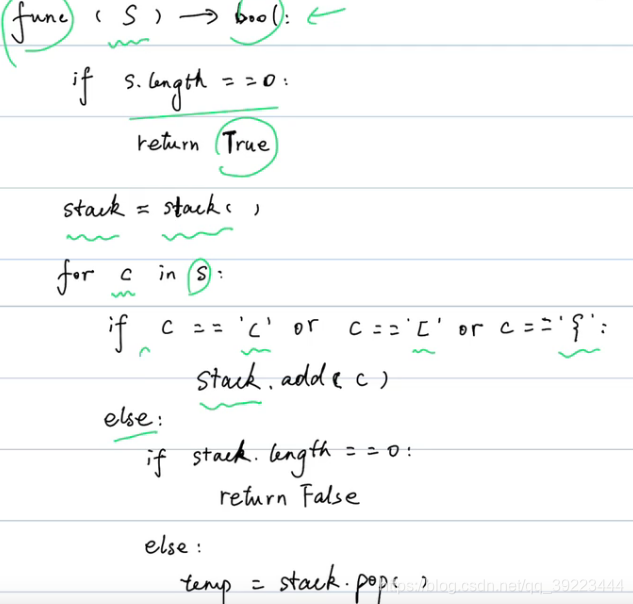 func ( S ) → bool:
if s.length == 0:
return True
stack = stack( )
for c in s:
if c == '(' or c == '[' or c == '{':
stack.add( c )
else:
if stack.length == 0:
return False
else:
temp = stack.pop( )
https://blog.csdn.net/qq_39223444